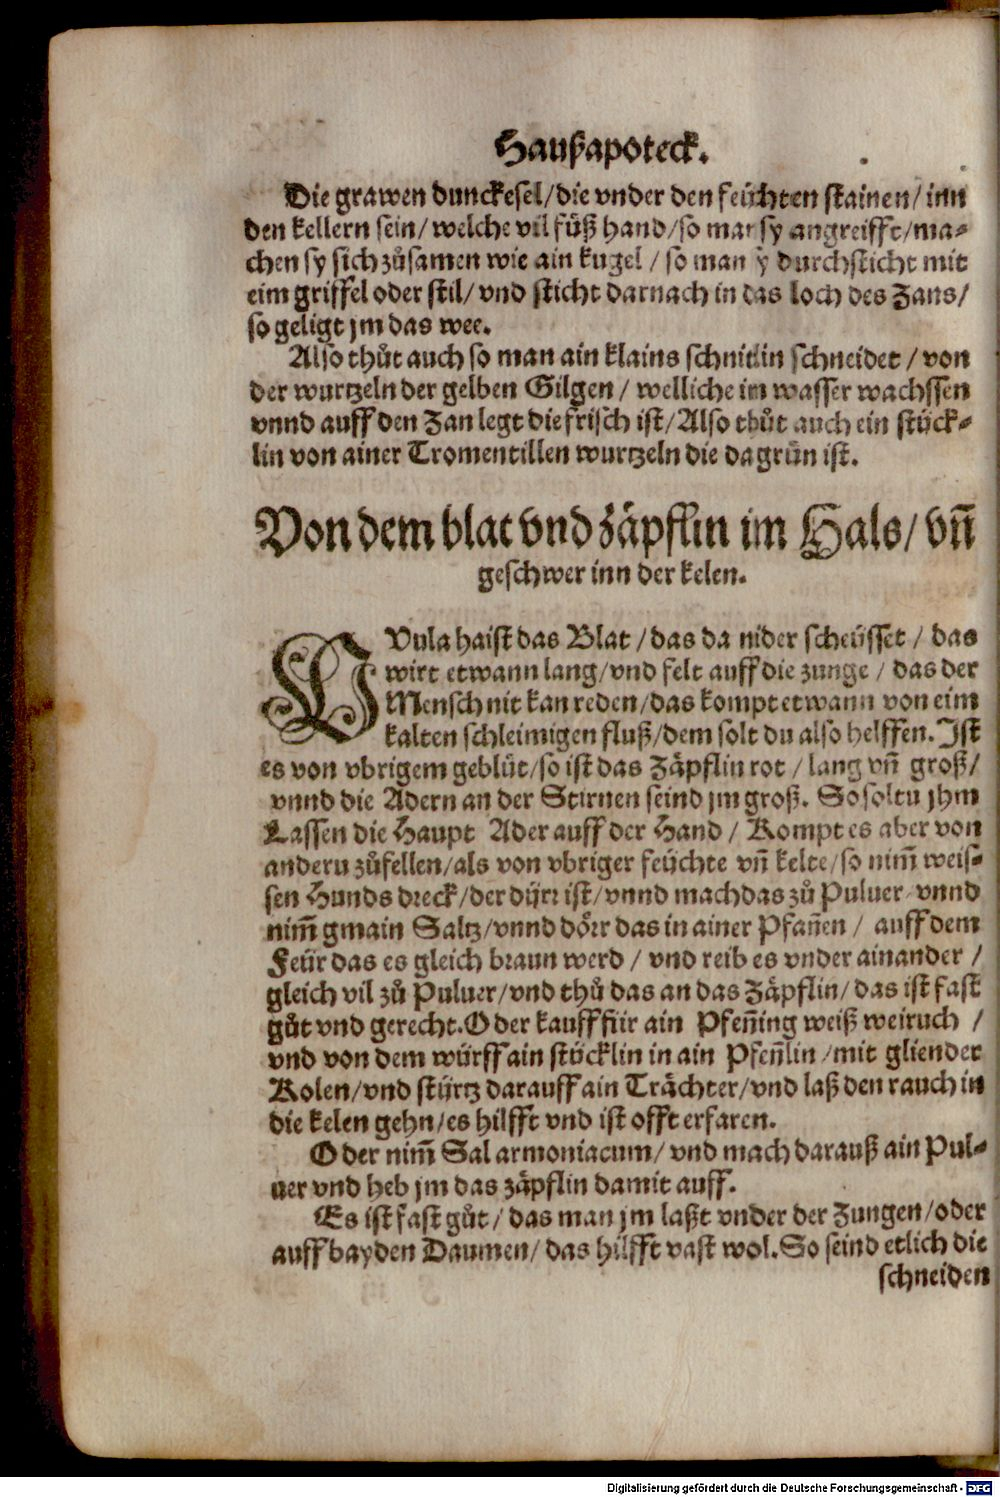 Haußapoteck.
Die grawen dunckesel/die vnder den feüchten stainen/inn
den kellern sein/welche vil fůß hand/so man sy angreifft/ma-
chen sy sich zůsamen wie ain kugel/so man y durchsticht mit
eim griffel oder stil/vnd sticht darnach in das loch des Zans/
so geligt jm das wee.
Also thůt auch so man ain klains schnitlin schneidet/von
der wurtzeln der gelben Gilgen/welliche im wasser wachssen
vnnd auff den Zan legt die frisch ist/Also thůt auch ein stück-
lin von ainer Tromentillen wurtzeln die da grün ist.
Von dem blat vnd zäpflin im Hals/vñ
geschwer inn der kelen.
UVula haist das Blat/das da nider scheüsset/das
wirt etwann lang/vnd felt auff die zunge/das der
Mensch nit kan reden/das kompt etwann von eim
kalten schleimigen fluß/dem solt du also helffen. Ist
es von vbrigem geblüt/so ist das Zäpflin rot/lang vñ groß/
vnnd die Adern an der Stirnen seind jm groß. So soltu jhm
Lassen die Haupt Ader auff der Hand/Kompt es aber von
andern zůfellen/als von vbriger feüchte vñ kelte/so nim̃ weis-
sen Hunds dreck/der dürr ist/vnnd mach das zů Puluer/vnnd
nim̃ gmain Saltz/vnnd dörr das in ainer Pfañen/auff dem
Feür das es gleich braun werd/vnd reib es vnder ainander/
gleich vil zů Puluer/vnd thů das an das Zäpflin/das ist fast
gůt vnd gerecht. Oder kauff für ain Pfeñing weiß weiruch/
vnd von dem würff ain stücklin in ain Pfeñlin/mit gliender
Kolen/vnd stürtz darauff ain Trächter/vnd laß den rauch in
die kelen gehn/es hilfft vnd ist offt erfaren.
Oder nim̃ Sal armoniacum/vnd mach darauß ain Pul-
uer vnd heb jm das zäpflin damit auff.
Es ist fast gůt/das man jm laßt vnder der Zungen/oder
auff bayden Daumen/das hilfft vast wol. So seind etlich die
schneiden
Digitalisierung gefördert durch die Deutsche Forschungsgemeinschaft - DFG